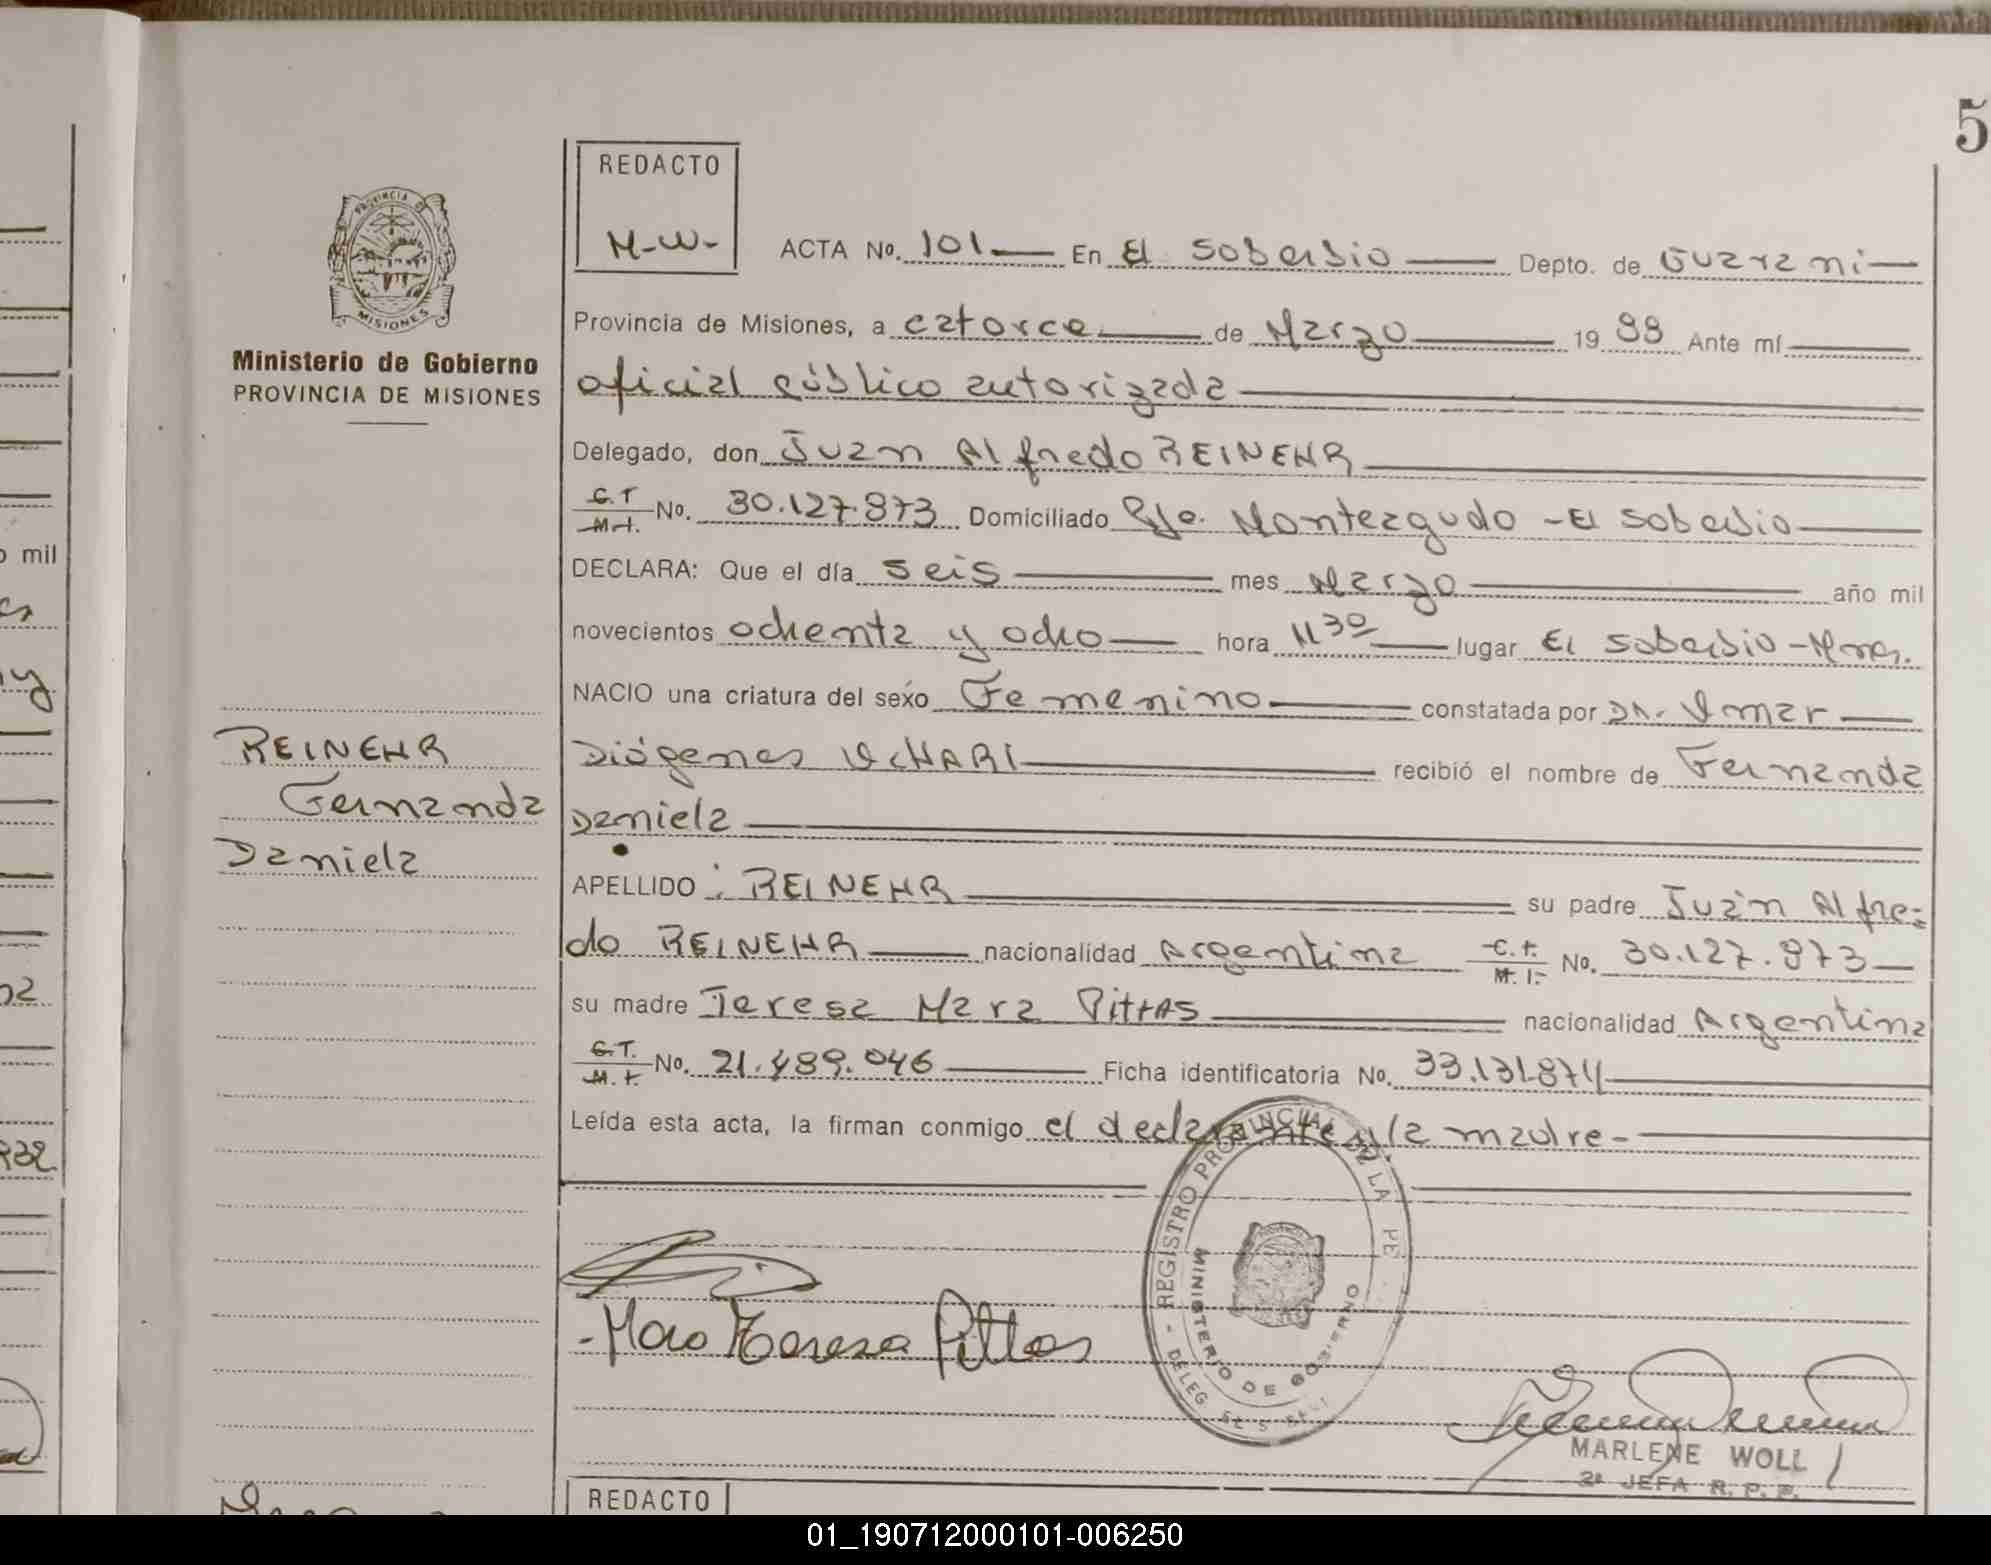 5
REDACTO
M-W-
ACTA No. 101 En El Soberbio Depto. de Guarani
PROVINCIA DE
MISIONES
Ministerio de Gobierno
PROVINCIA DE MISIONES
Provincia de Misiones, a catorce de Marzo 1988 Ante mí
oficial público autorizada
Delegado, don Juan Alfredo REINEHR
C.I M.I. No. 30.127.873 Domiciliado Pje. Monteagudo - El Soberbio
DECLARA: Que el día seis mes Marzo año mil
novecientos ochenta y ocho hora 11 30 lugar El Soberbio - Mnes.
NACIO una criatura del sexo Femenino constatada por Dr. Omar
Diógenes OCHARI recibió el nombre de Fernanda
Daniela
REINEHR
Fernanda
Daniela
APELLIDO : REINEHR su padre Juan Alfre=
do REINEHR nacionalidad Argentina C.I. M.I. No. 30.127.873
su madre Teresa Mara Pittas nacionalidad Argentina
C.I. M.I. No. 21.489.046 Ficha identificatoria No. 33.131.874
Leída esta acta, la firman conmigo el declarante y la madre-
REGISTRO PROVINCIAL DE LA PE
MINISTERIO DE GOBIERNO
DELEG
Mara Teresa Pittas
MARLENE WOLL
2ª JEFA R. P. P.
REDACTO
o mil
01_190712000101-006250